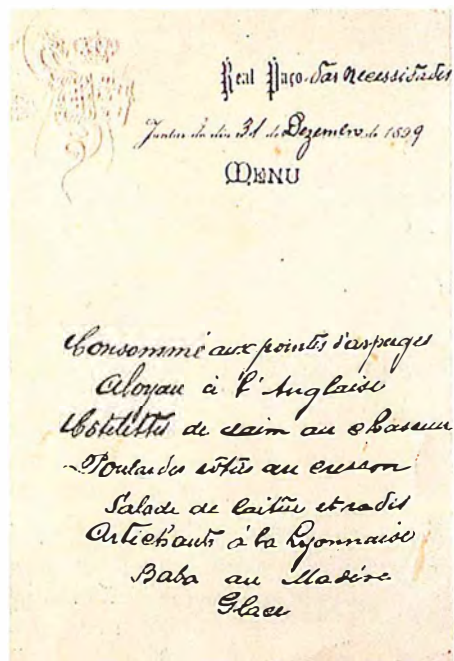 Real Paço das Necessidades
Jantar do dia 31 de Dezembro de 1899
MENU
Consommé aux pointes d'asperges
Aloyau à l'Anglaise
Côtelettes de daim au chasseur
Poulardes rôties au cresson
Salade de laitue et radis
Artichauts à la Lyonnaise
Baba au Madère
Glace